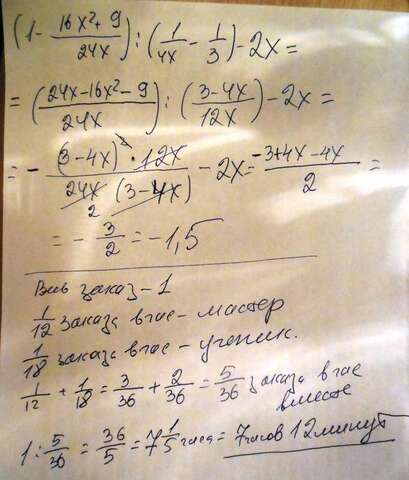 (1 - (16x² + 9)/(24x)) : (1/(4x) - 1/3) - 2x =
= ((24x - 16x² - 9)/(24x)) : ((3 - 4x)/(12x)) - 2x =
= - ((3 - 4x)² · 12x)/(24x (3 - 4x)) - 2x = (-3 + 4x - 4x)/2 =
2
= - 3/2 = -1,5
Весь заказ - 1
1/12 заказа в час - мастер
1/18 заказа в час - ученик.
1/12 + 1/18 = 3/36 + 2/36 = 5/36 заказа в час
вместе
1 : 5/36 = 36/5 = 7 1/5 часа = 7 часов 12 минут